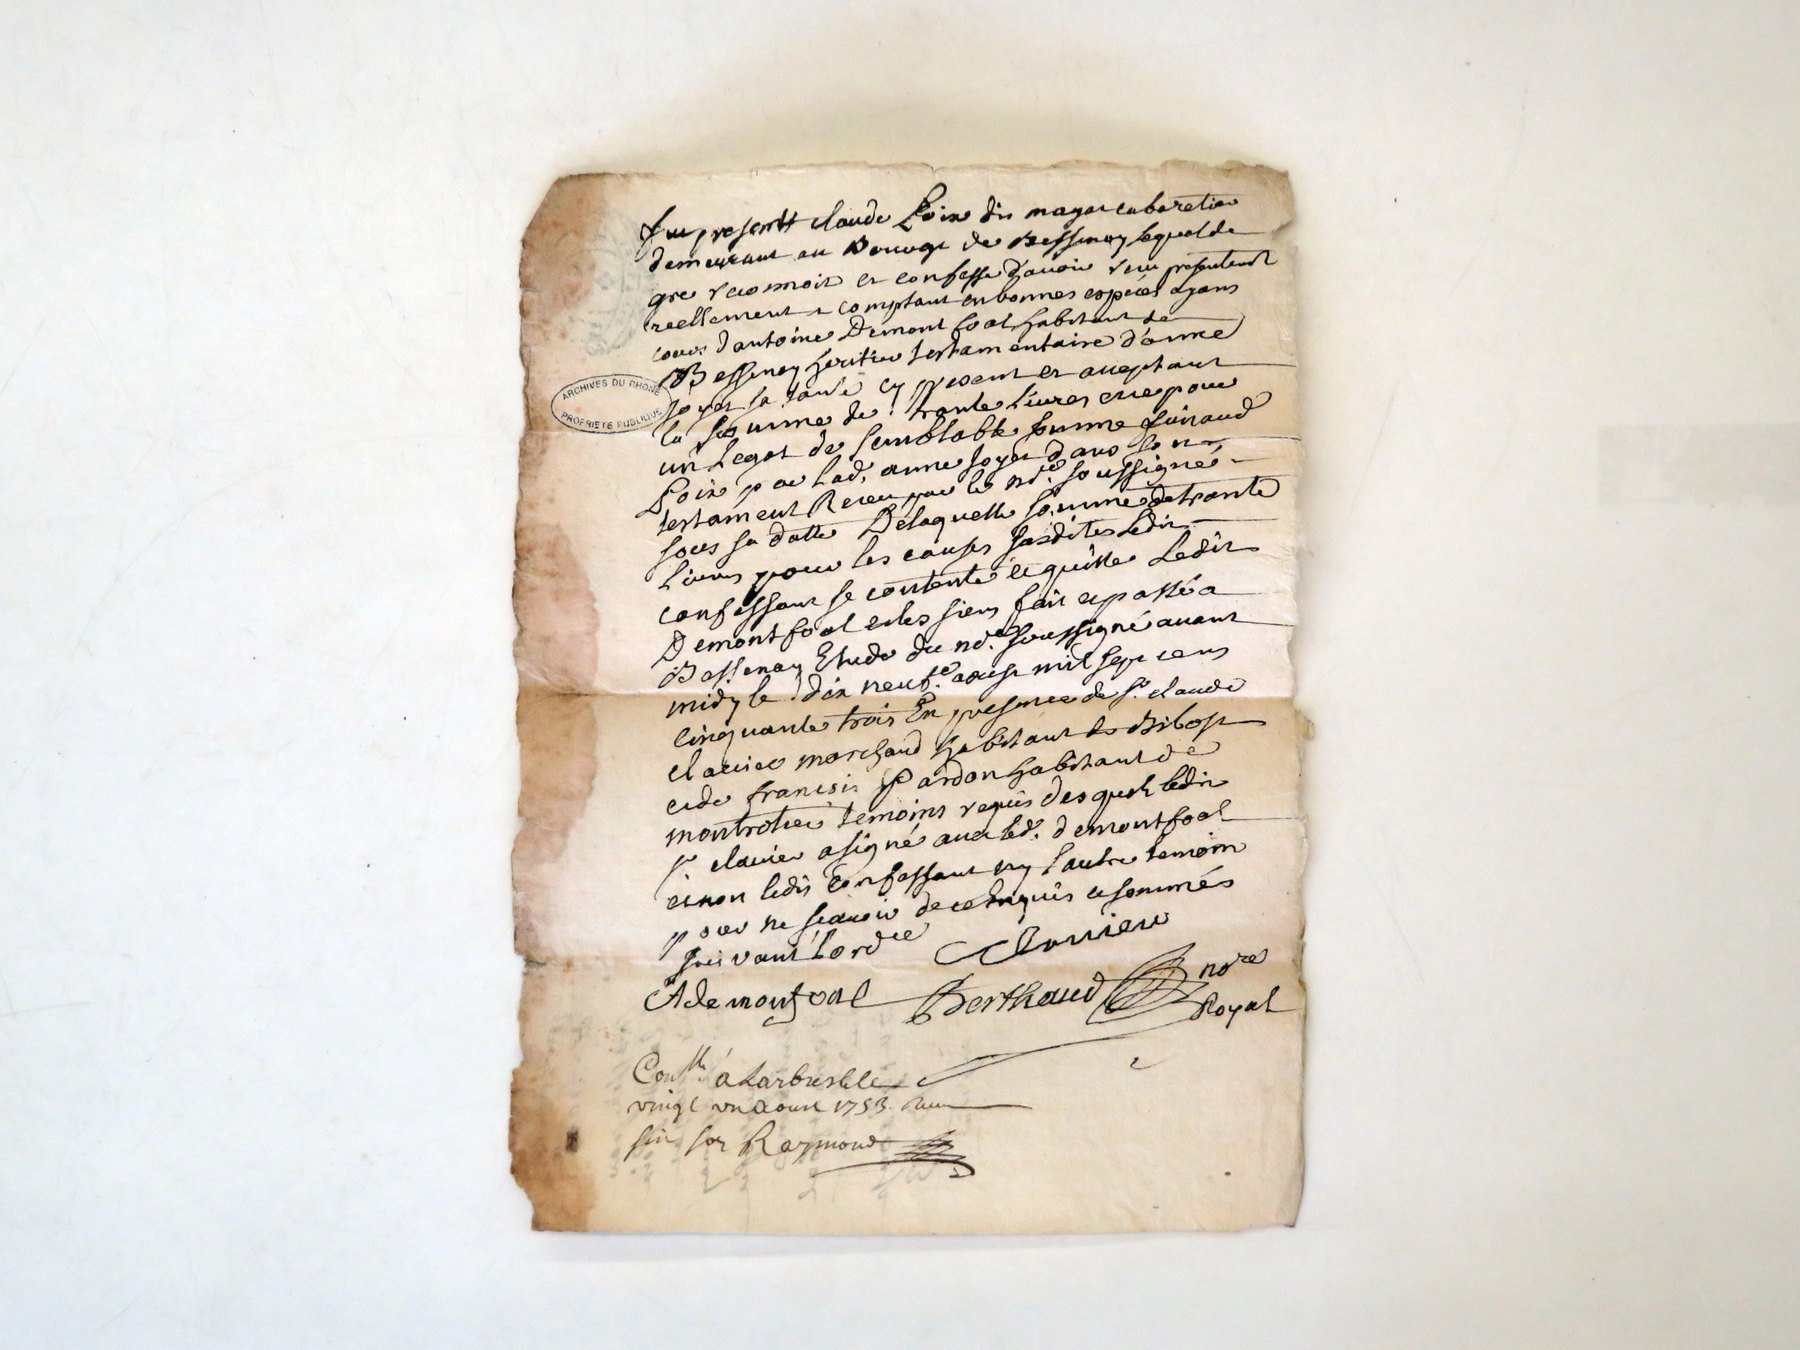 fut present claude Loix dit mayat cabaretier
demeurant au Bourg de Bessenay lequel de
gre reconnoit et confesse d'avoir reçu présentemt
reellement et comptant en bonnes espèces ayans
cours d'antoine Demontfoal habitant de
Bessenay heritier testamentaire d'anne
joyet sa tante cy present et acceptant
la somme de trante livres et ce pour
un Legat de semblable somme fait aud
Loix par lad. anne joyet dans son
testament Receu par le nore. soussigné
sous sa datte Delaquelle somme de trante
Livres pour les causes susdites Ledit
confessant se contente et quitte Ledit
Demontfoal et les siens fait et passé a
Bessenay Etude du nore. soussigné avant
midy le dix neufe. aoust mil sept cens
cinquante trois En presence de sr. claude
clavier marchand habitant de Bibost
et de francois Pardon habitant de
montrotier temoins requis desquels ledit
sr clavier a signé avec led. demontfoal
et non ledit Confessant ny l'autre temoin
pour ne scavoir de ce Enquis et sommés
suivant L'ordce
Clavier
ADemontfoal Berthaud nore
Royal
ARCHIVES DU RHONE
PROPRIETE PUBLIQUE
Conllé à Larbresle le
vingt un aoust 1753. Reçu
six sols Raymond